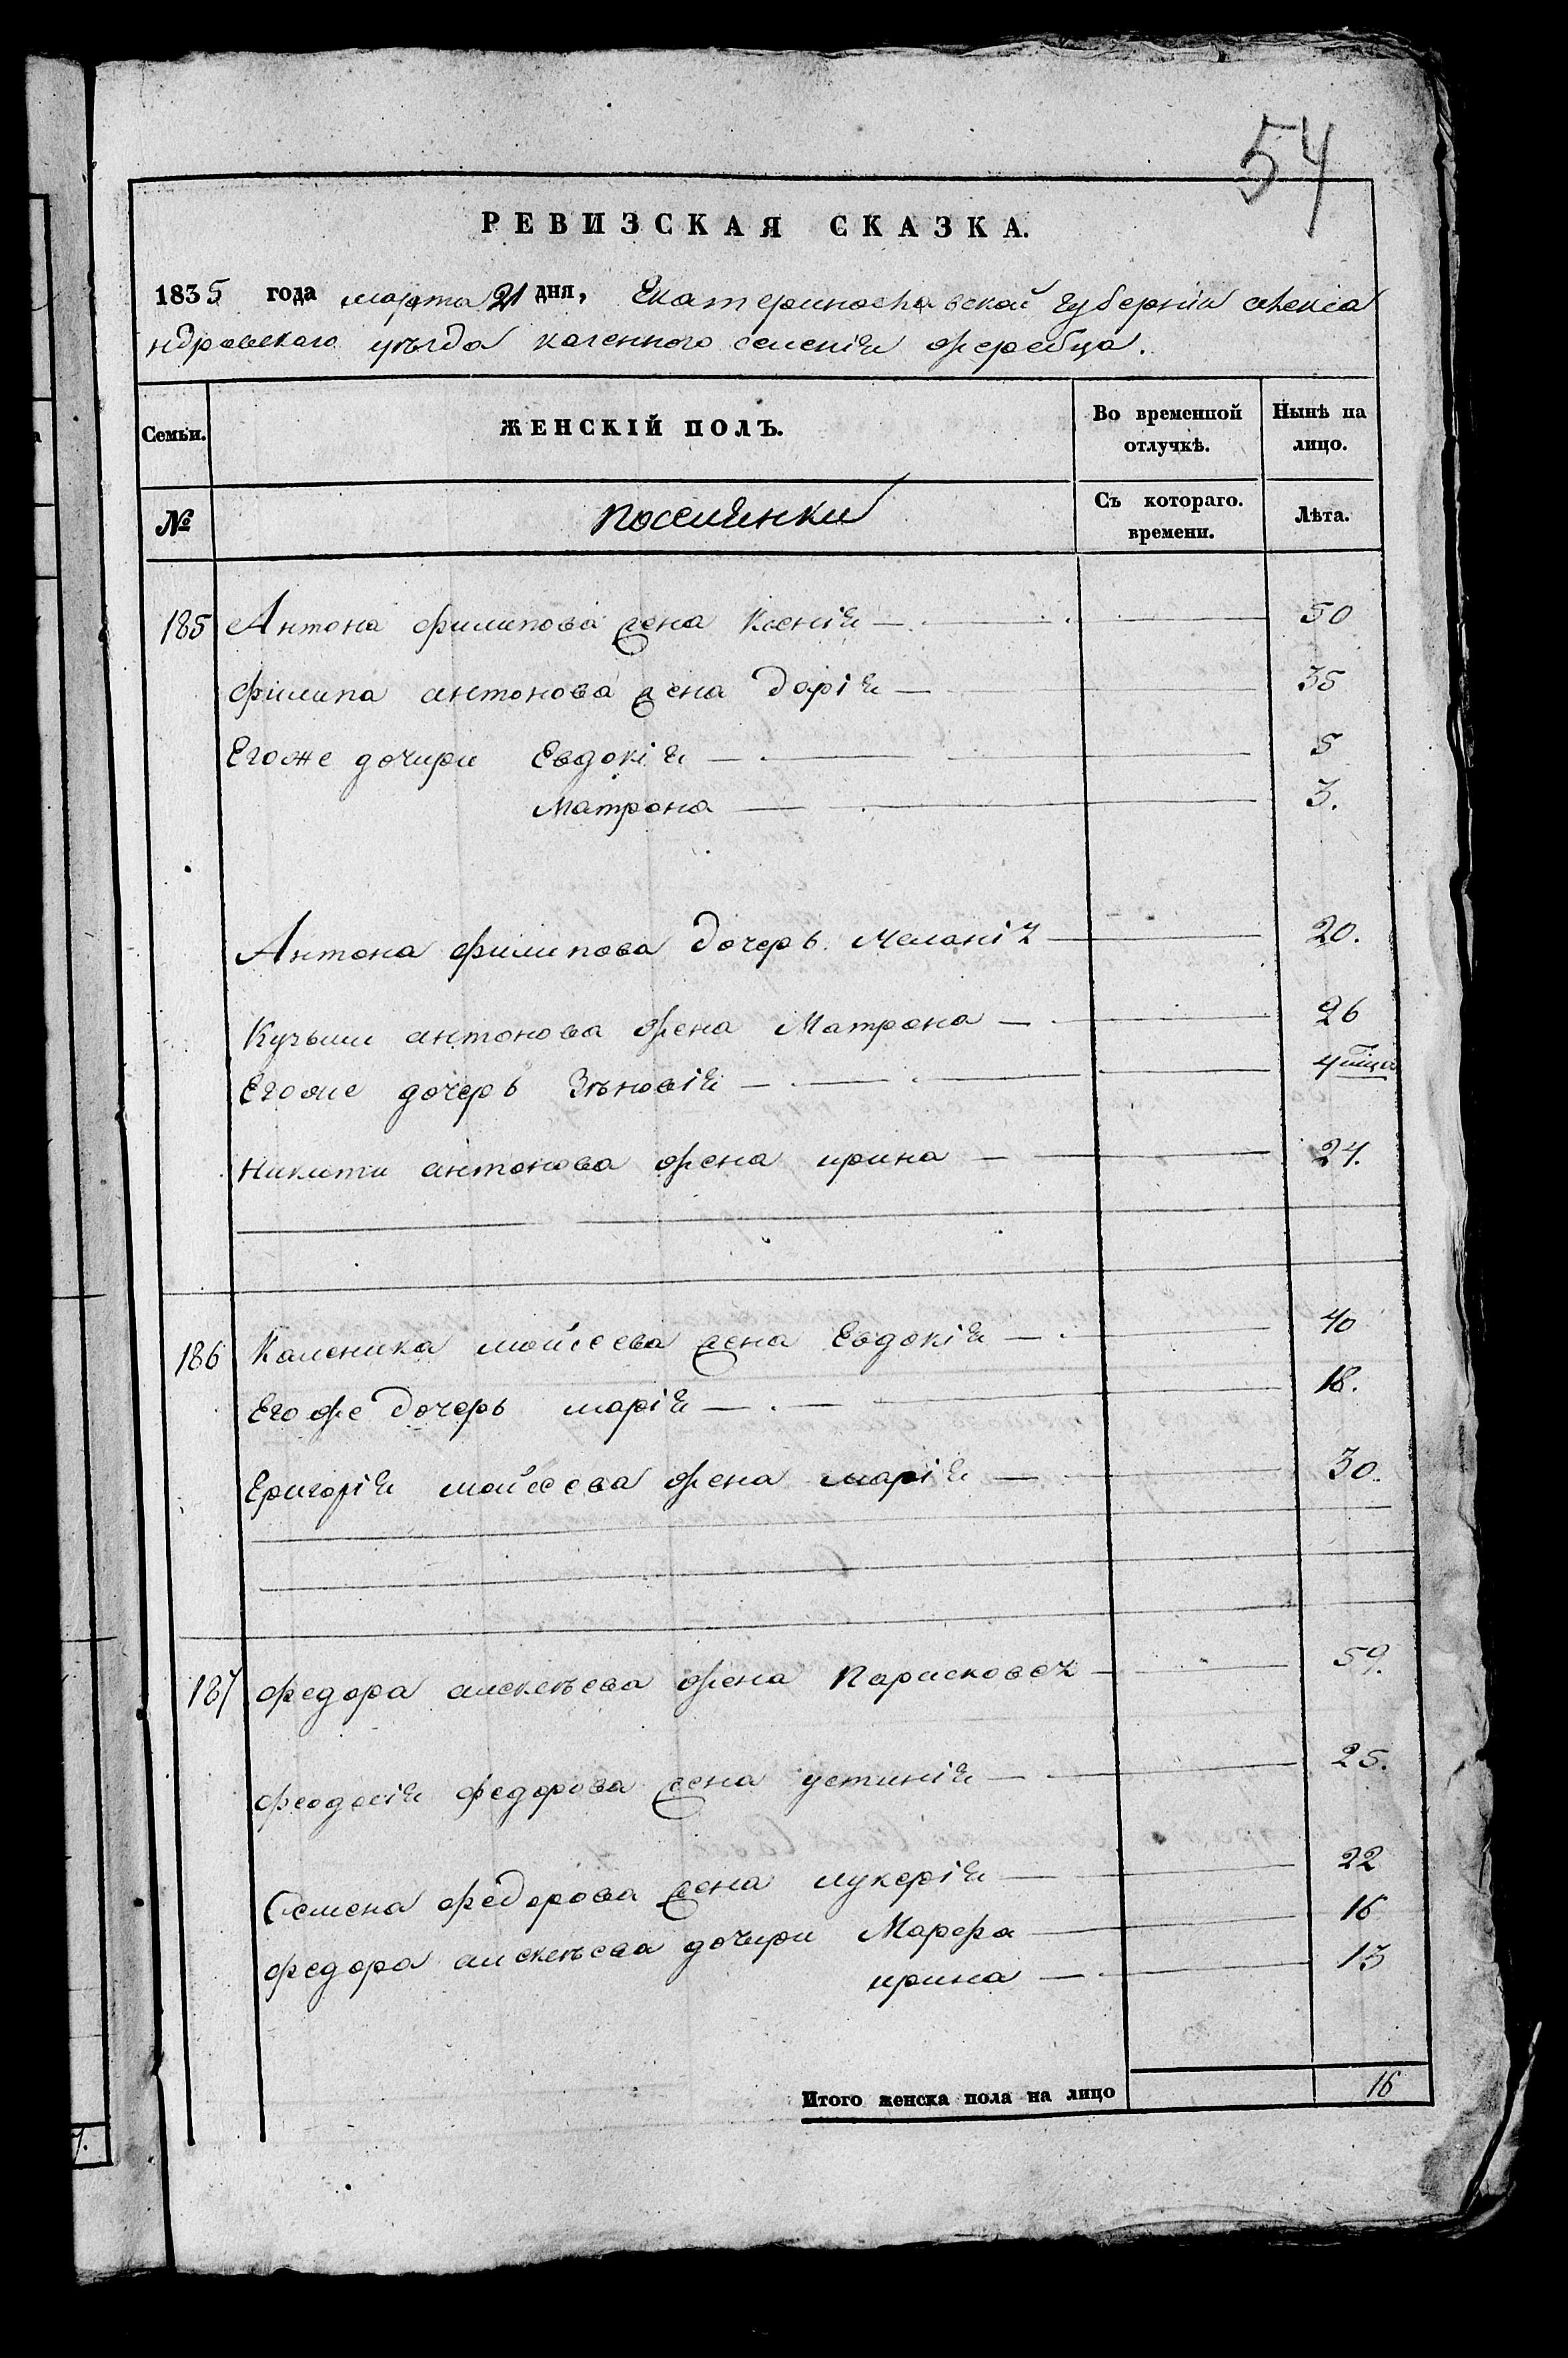 54
РЕВИЗСКАЯ СКАЗКА.
1835 года марта 21 дня, Екатеринославской губерніи алекса
ндровскаго уѣзда казенного селенія жеребца.
Семьи.
ЖЕНСКІЙ ПОЛЪ.
Во временной отлучкѣ.
Нынѣ на лицо.
№
поселянки
Съ котораго. времени.
Лѣта.
185 Антона филипова жена Ксенія — 50
филипа антонова жена дарія — 35
Егоже дочири Евдокія — 5
Матрона — 3.
Антона филипова дочерь Меланія — 20.
Кузьми антонова жена Матрона — 26
Егоже дочерь Зѣновія — 4 мца
Никити антонова жена ирина — 24.
186 Каленика мойсеева жена Евдокія — 40
Егоже дочерь марія — 18.
Григорія мойсеева жена марія — 30.
187 федора алексѣева жена Парасковея — 59.
феодосія федорова жена устинія — 25.
Семена федорова жена лукерія — 22
федора алексѣева дочири Марфа — 16
ирина — 13
Итого женска пола на лицо 16